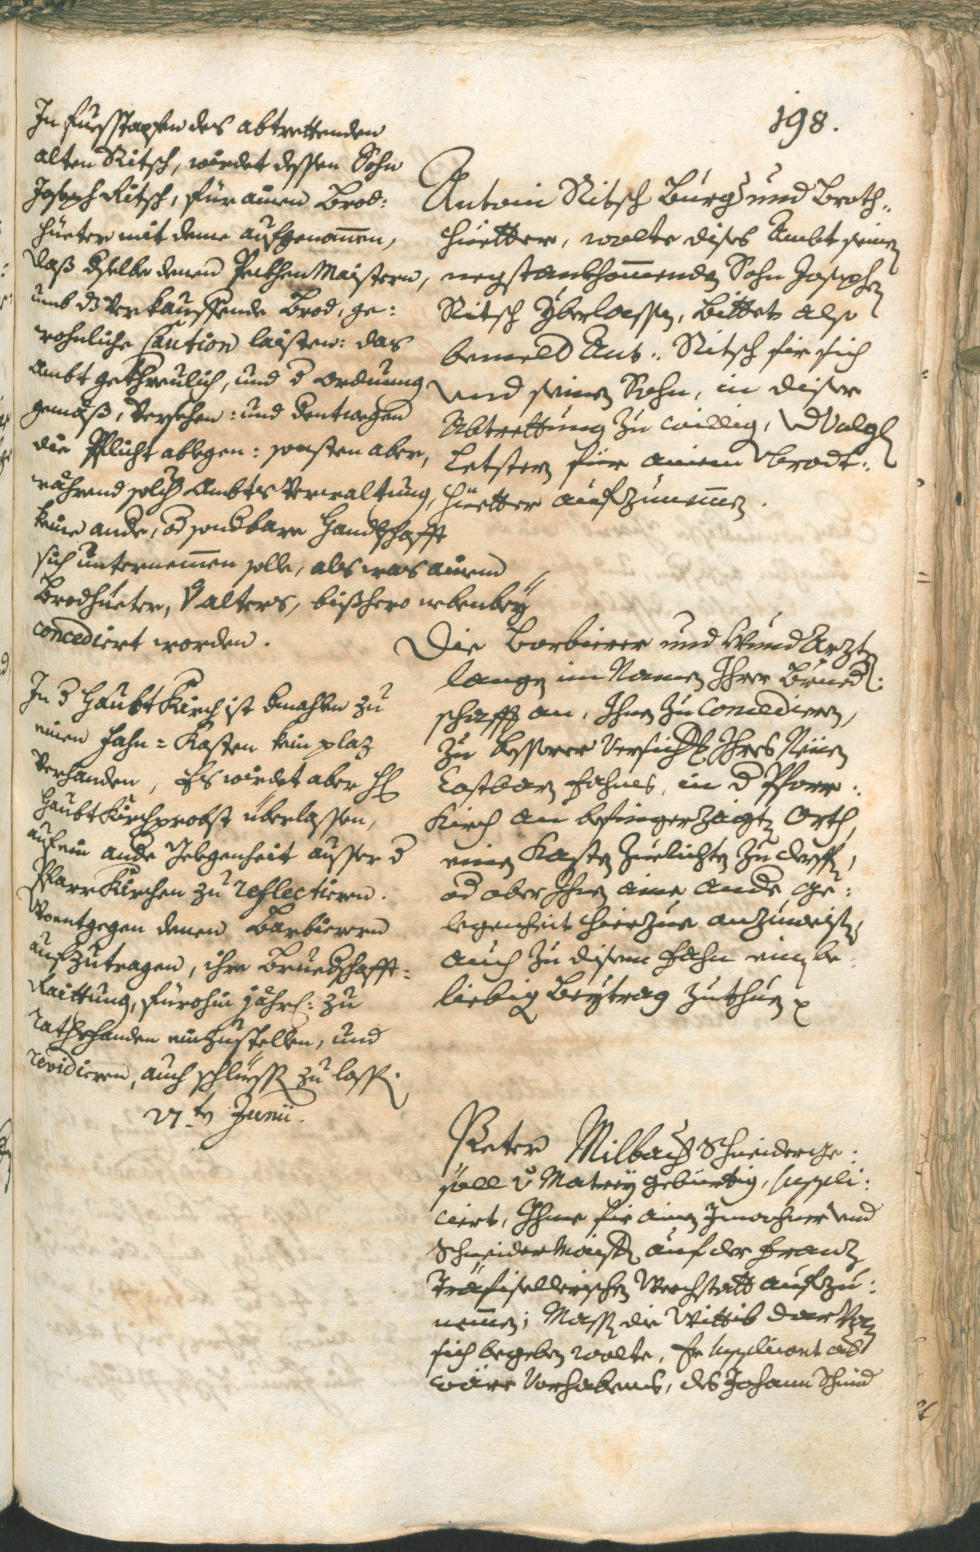 198.
In fuesstapfen des abtrettenden
alten Ritsch, würdet dessen Sohn
Joseph Ritsch, für ainen Brod:
hüeter mit deme aufgenommen,
daß dselbe denen Pekhen Maistern,
umb ds verkauffende Brod, ge:
wohnliche Caution laisten: das
Ambt gethreulich, und d ordnung
gemäß, versehen: und dentwegen
die Pflicht ablegen: sonsten aber,
während solch Ambts Verwaltung,
keine ande, od sondbare Handtschafft
sich unternemmen solle, als was ainem
Brodhüeter, v alters, bißhero nebenbey
concediert worden.
In d HaubtKirch ist dmahlen zu
einen Fahn=Kasten kein plaz
verhanden, Es würdet aber H
HaubtKirchprobst überlassen,
auf ein ande Gelegenheit ausser d
PfarrKirchen zu reflectieren.
Woentgegen denen Barbierern
aufzutragen, ihre Bruedschafft=
Raittung, fürohin jährl: zu
Rathshanden einzustellen, und
revidieren, auch schliessen zu lassen.
27.ten Junii.
Antoni Ritsch Burg und Broth„
hüetter, wolte dises Ambt seinen
negstankhommenden Sohn Josephen
Ritsch yberlassen, bittet also
bemeld Ant: Ritsch für sich
und seinen Sohn, in diser
Abtrettung zu willig,
letsten für ainem Brodt:
hüetter aufzunemmen.
Die Barbierer und WundArzt
langen im Namen Ihrer Brued:
schafft an, Ihnen zu Concedieren,
zu besserer Versicht Ihres Neüen
Costbarn Fahnes, in d Pfarr:
Kirch an befingerzaigten Orth,
einen Kasten zuerichten zu derffen,
od aber Ihnen eine ande ge:
legenheit hierzue anzuweisen,
auch zu disem Fahn ein be:
liebig Beytrag zuthuen
Peter Milbach Schneiderge:
söll v Matrey gebürtig, suppli:
ciert, Ihme für ainen Inwohner und
Schneider Maister auf der Franz
Träfisellerischen Werchstatt aufzu:
nemmen; Massen die Wittib darvon
sich begeben wolte, Er Supplicant ab
wäre Vorhabens, des Johann Schmid